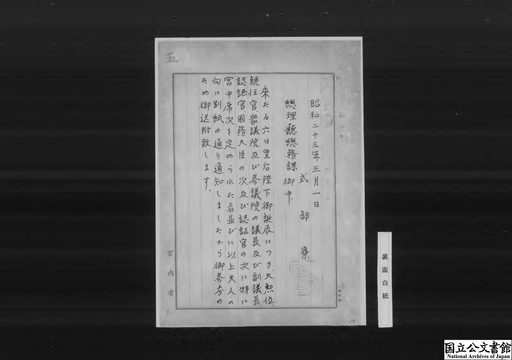 五
昭和二十三年三月一日
式部寮
総理廳総務課御中
来たる六日皇后陛下御誕辰につき大勲位
親任官衆議院及び参議院の議長及び副議長
認証官国務大臣の次及び認証官の次に特に
宮中席次を定められた者並びに以上夫人の
向に別紙の通り通知しましたから御参考の
ため御送附致します。
宮内府
裏面白紙
国立公文書館
National Archives of Japan